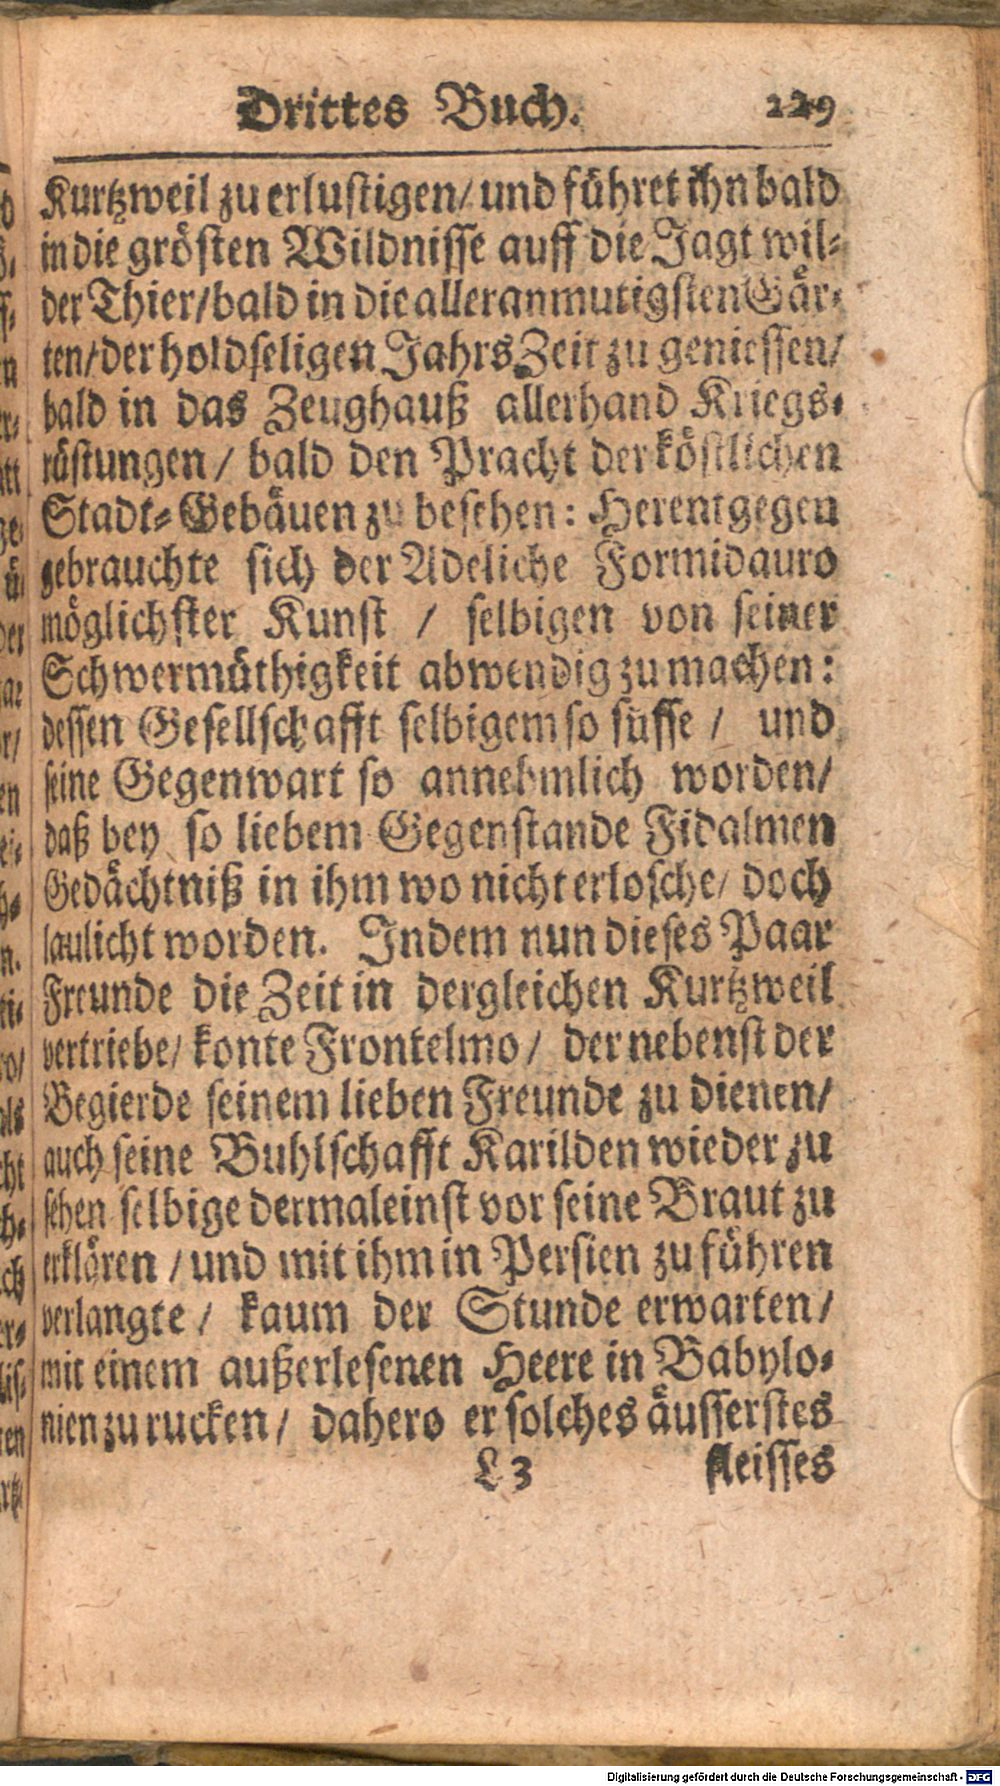 Drittes Buch. 229
Kurtzweil zu erlustigen/ und führet ihn bald
in die grösten Wildnisse auff die Jagt wil-
der Thier/ bald in die alleranmutigsten Gär-
ten/ der holdseligen Jahrs Zeit zu geniessen/
bald in das Zeughauß allerhand Kriegs-
rüstungen/ bald den Pracht der köstlichen
Stadt-Gebäuen zu besehen: Herentgegen
gebrauchte sich der Adeliche Formidauro
möglichster Kunst / selbigen von seiner
Schwermüthigkeit abwendig zu machen:
dessen Gesellschafft selbigem so süsse / und
seine Gegenwart so annehmlich worden/
daß bey so liebem Gegenstande Fidalmen
Gedächtniß in ihm wo nicht erlosche/ doch
laulicht worden. Indem nun dieses Paar
Freunde die Zeit in dergleichen Kurtzweil
vertriebe/ konte Frontelmo/ der nebenst der
Begierde seinem lieben Freunde zu dienen/
auch seine Buhlschafft Karilden wieder zu
sehen selbige dermaleinst vor seine Braut zu
erklären / und mit ihm in Persien zu führen
verlangte/ kaum der Stunde erwarten/
mit einem außerlesenen Heere in Babylo-
nien zu rucken/ dahero er solches äusserstes
L 3 fleisses
Digitalisierung gefördert durch die Deutsche Forschungsgemeinschaft - DFG